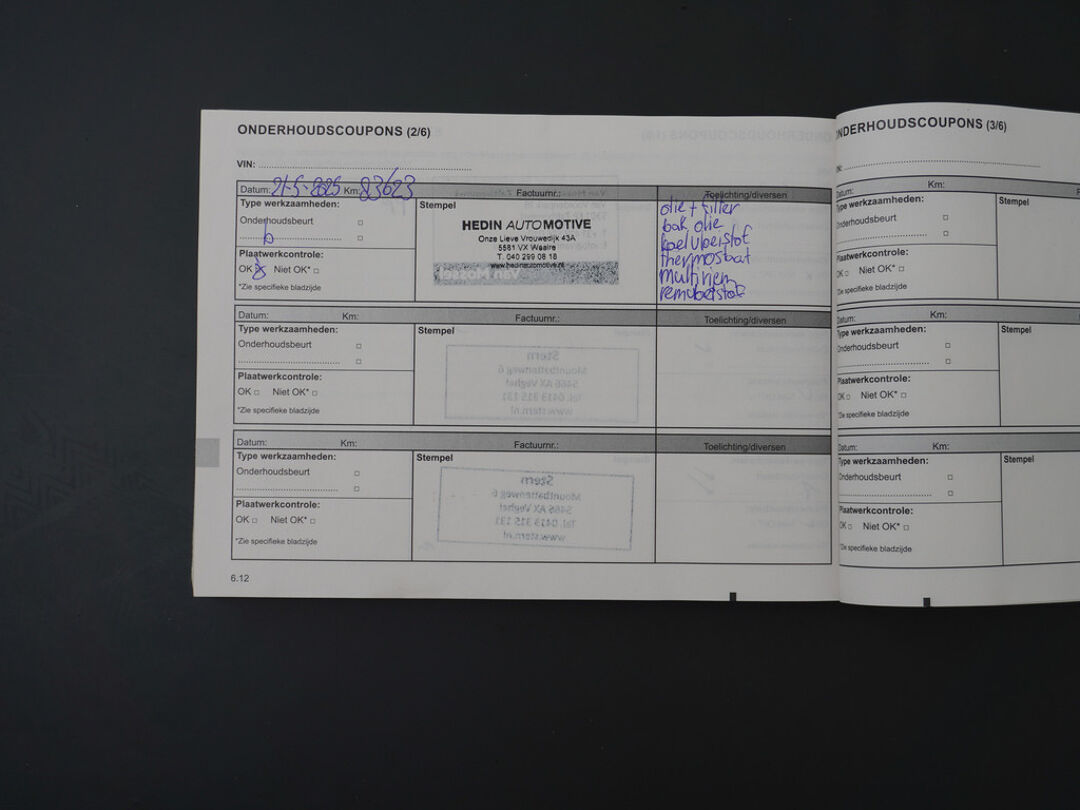 ONDERHOUDSCOUPONS (2/6)
VIN:
Datum: 21-5-2025 Km: 83623 Factuurnr.: Toelichting/diversen
Type werkzaamheden:
Onderhoudsbeurt
b
Plaatwerkcontrole:
OK Niet OK*
*Zie specifieke bladzijde
Stempel
HEDIN AUTOMOTIVE
Onze Lieve Vrouwedijk 43A
5581 VX Waalre
T. 040 299 08 18
www.hedinautomotive.nl
olie + filter
bak olie
koelvloeistof
thermostaat
multiriem
remvloeistof
Datum: Km: Factuurnr.: Toelichting/diversen
Type werkzaamheden:
Onderhoudsbeurt
Plaatwerkcontrole:
OK Niet OK*
*Zie specifieke bladzijde
Stempel
Datum: Km: Factuurnr.: Toelichting/diversen
Type werkzaamheden:
Onderhoudsbeurt
Plaatwerkcontrole:
OK Niet OK*
*Zie specifieke bladzijde
Stempel
6.12
ONDERHOUDSCOUPONS (3/6)
Datum: Km:
Type werkzaamheden:
Onderhoudsbeurt
Plaatwerkcontrole:
OK Niet OK*
*Zie specifieke bladzijde
Stempel
Datum: Km:
Type werkzaamheden:
Onderhoudsbeurt
Plaatwerkcontrole:
OK Niet OK*
*Zie specifieke bladzijde
Stempel
Datum: Km:
Type werkzaamheden:
Onderhoudsbeurt
Plaatwerkcontrole:
OK Niet OK*
*Zie specifieke bladzijde
Stempel